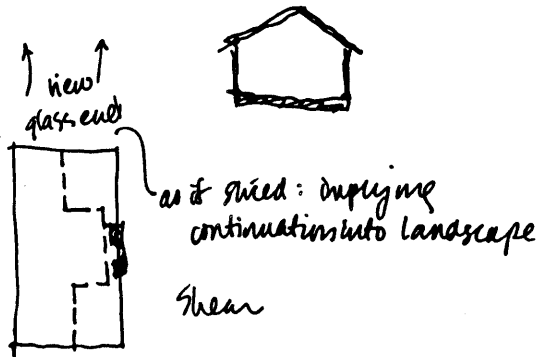 view
glass end
as if sliced: implying
continuation into landscape
Shear